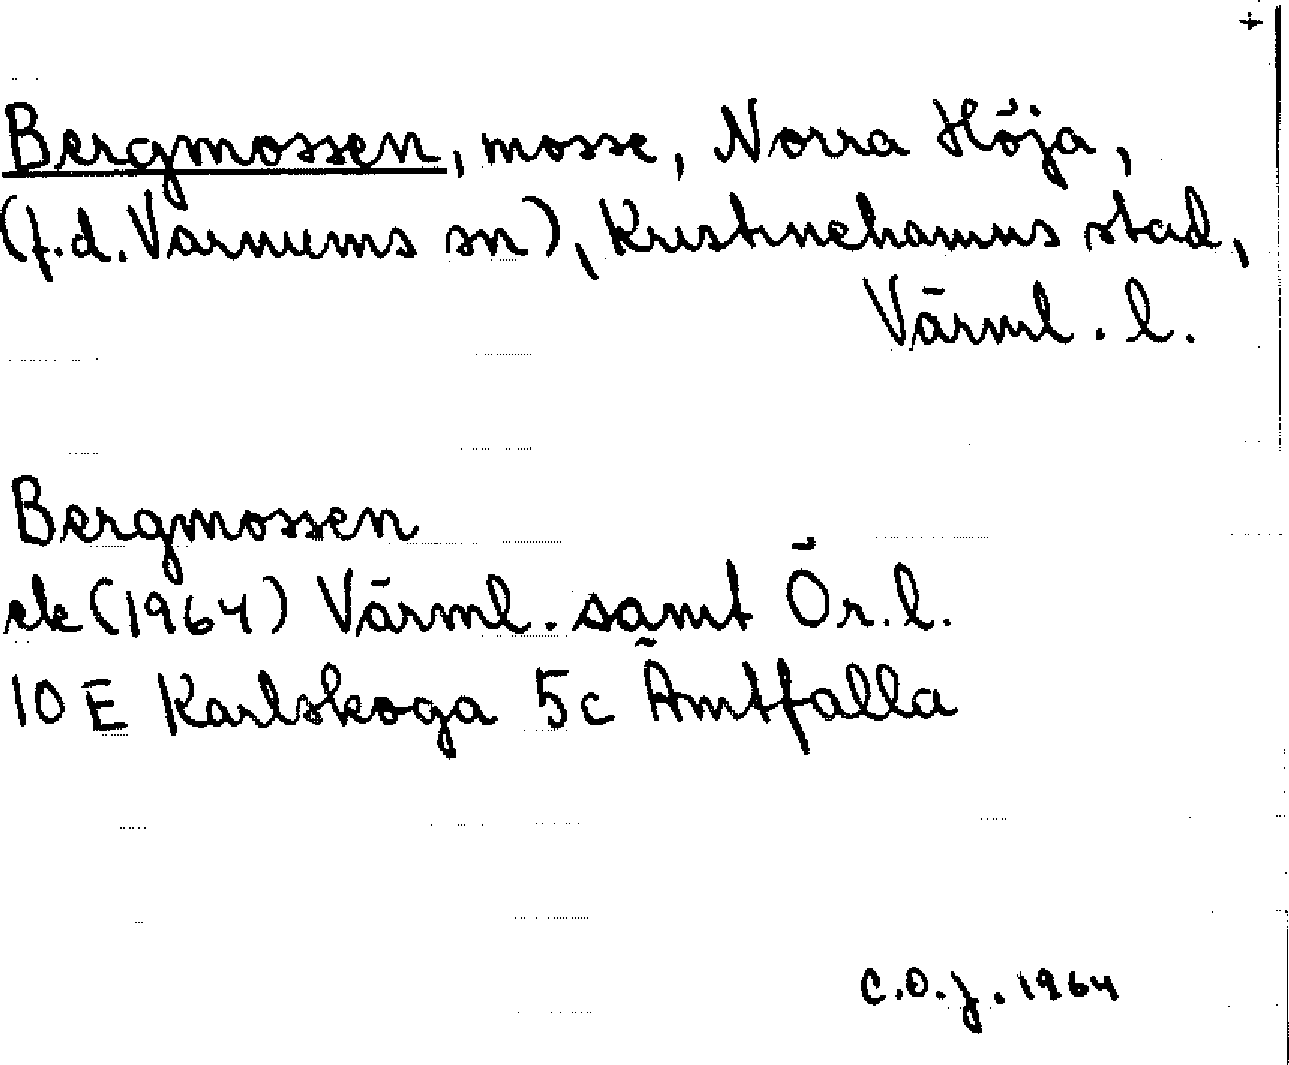 +
Bergmossen, mosse, Norra Höja,
(f.d. Varnums sn), Kristinehamns stad,
Värml. l.
Bergmossen
ek (1964) Värml. samt Ör. l.
10 E Karlskoga 5c Ämtfalla
C.O.J. 1964